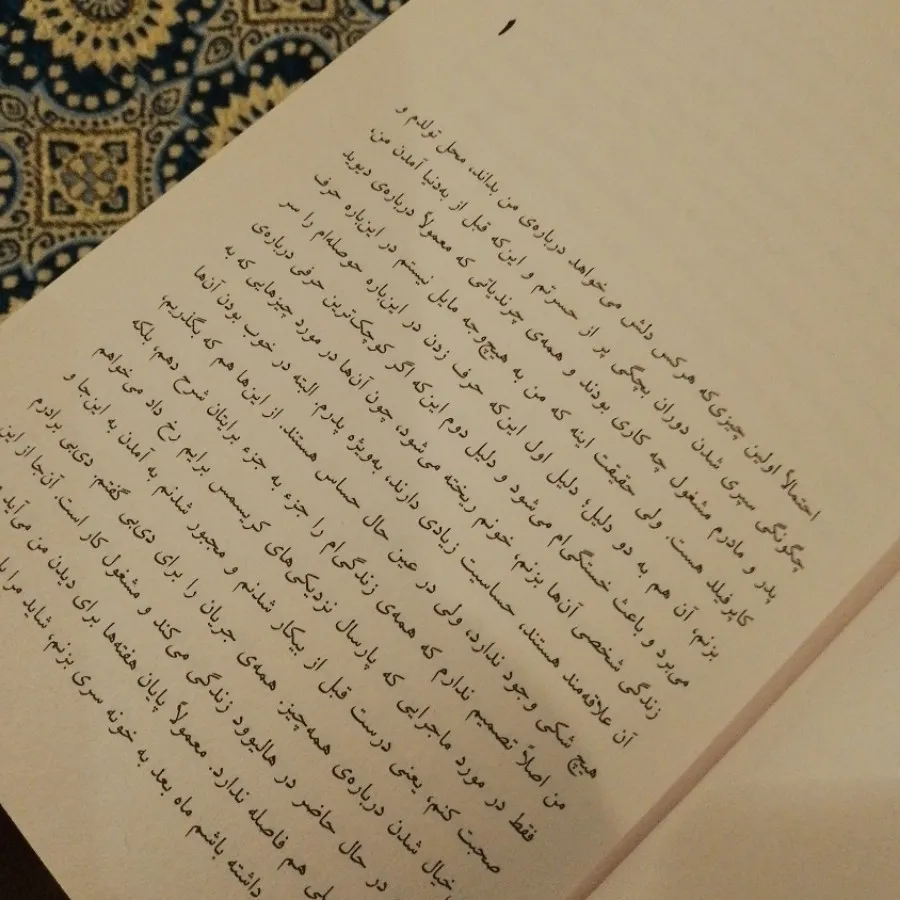 ۱
احتمالاً اولین چیزی‌که هرکس دلش می‌خواهد درباره‌ی من بداند، محل تولدم و
چگونگی سپری شدن دوران بچگی پر از حسرتم و این‌که قبل از به‌دنیا آمدن من،
پدر و مادرم مشغول چه کاری بودند و همه‌ی چرندیاتی که معمولاً درباره‌ی دیوید
کاپرفیلد هست. ولی حقیقت اینه که من به هیچ‌وجه مایل نیستم در این‌باره حرف
بزنم، آن هم به دو دلیل؛ دلیل اول این‌که حرف زدن در این‌باره حوصله‌ام را سر
می‌برد و باعث خستگی‌ام می‌شود و دلیل دوم این‌که اگر کوچک‌ترین حرفی درباره‌ی
زندگی شخصی آن‌ها بزنم، خونم ریخته می‌شود، چون آن‌ها در مورد چیزهایی که به
آن علاقه‌مند هستند، حساسیت زیادی دارند، به‌ویژه پدرم. البته در خوب بودن آن‌ها
هیچ شکی وجود ندارد، ولی در عین حال حساس هستند. از این‌ها هم که بگذریم،
من اصلاً تصمیم ندارم که همه‌ی زندگی‌ام را جزء به جزء برایتان شرح دهم، بلکه
فقط در مورد ماجرایی که پارسال نزدیکی‌های کریسمس برایم رخ داد می‌خواهم
صحبت کنم، یعنی درست قبل از بیکار شدنم و مجبور شدنم به آمدن به این‌جا و
خیال شدن درباره‌ی همه‌چیز. همه‌ی جریان را برای دی‌بی گفتم. دی‌بی برادرم
در حال حاضر در هالیوود زندگی می‌کند و مشغول کار است. آن‌جا از این
هم فاصله ندارد. معمولاً پایان هفته‌ها برای دیدن من می‌آید
داشته باشم ماه بعد به خونه سری بزنم، شاید مرا